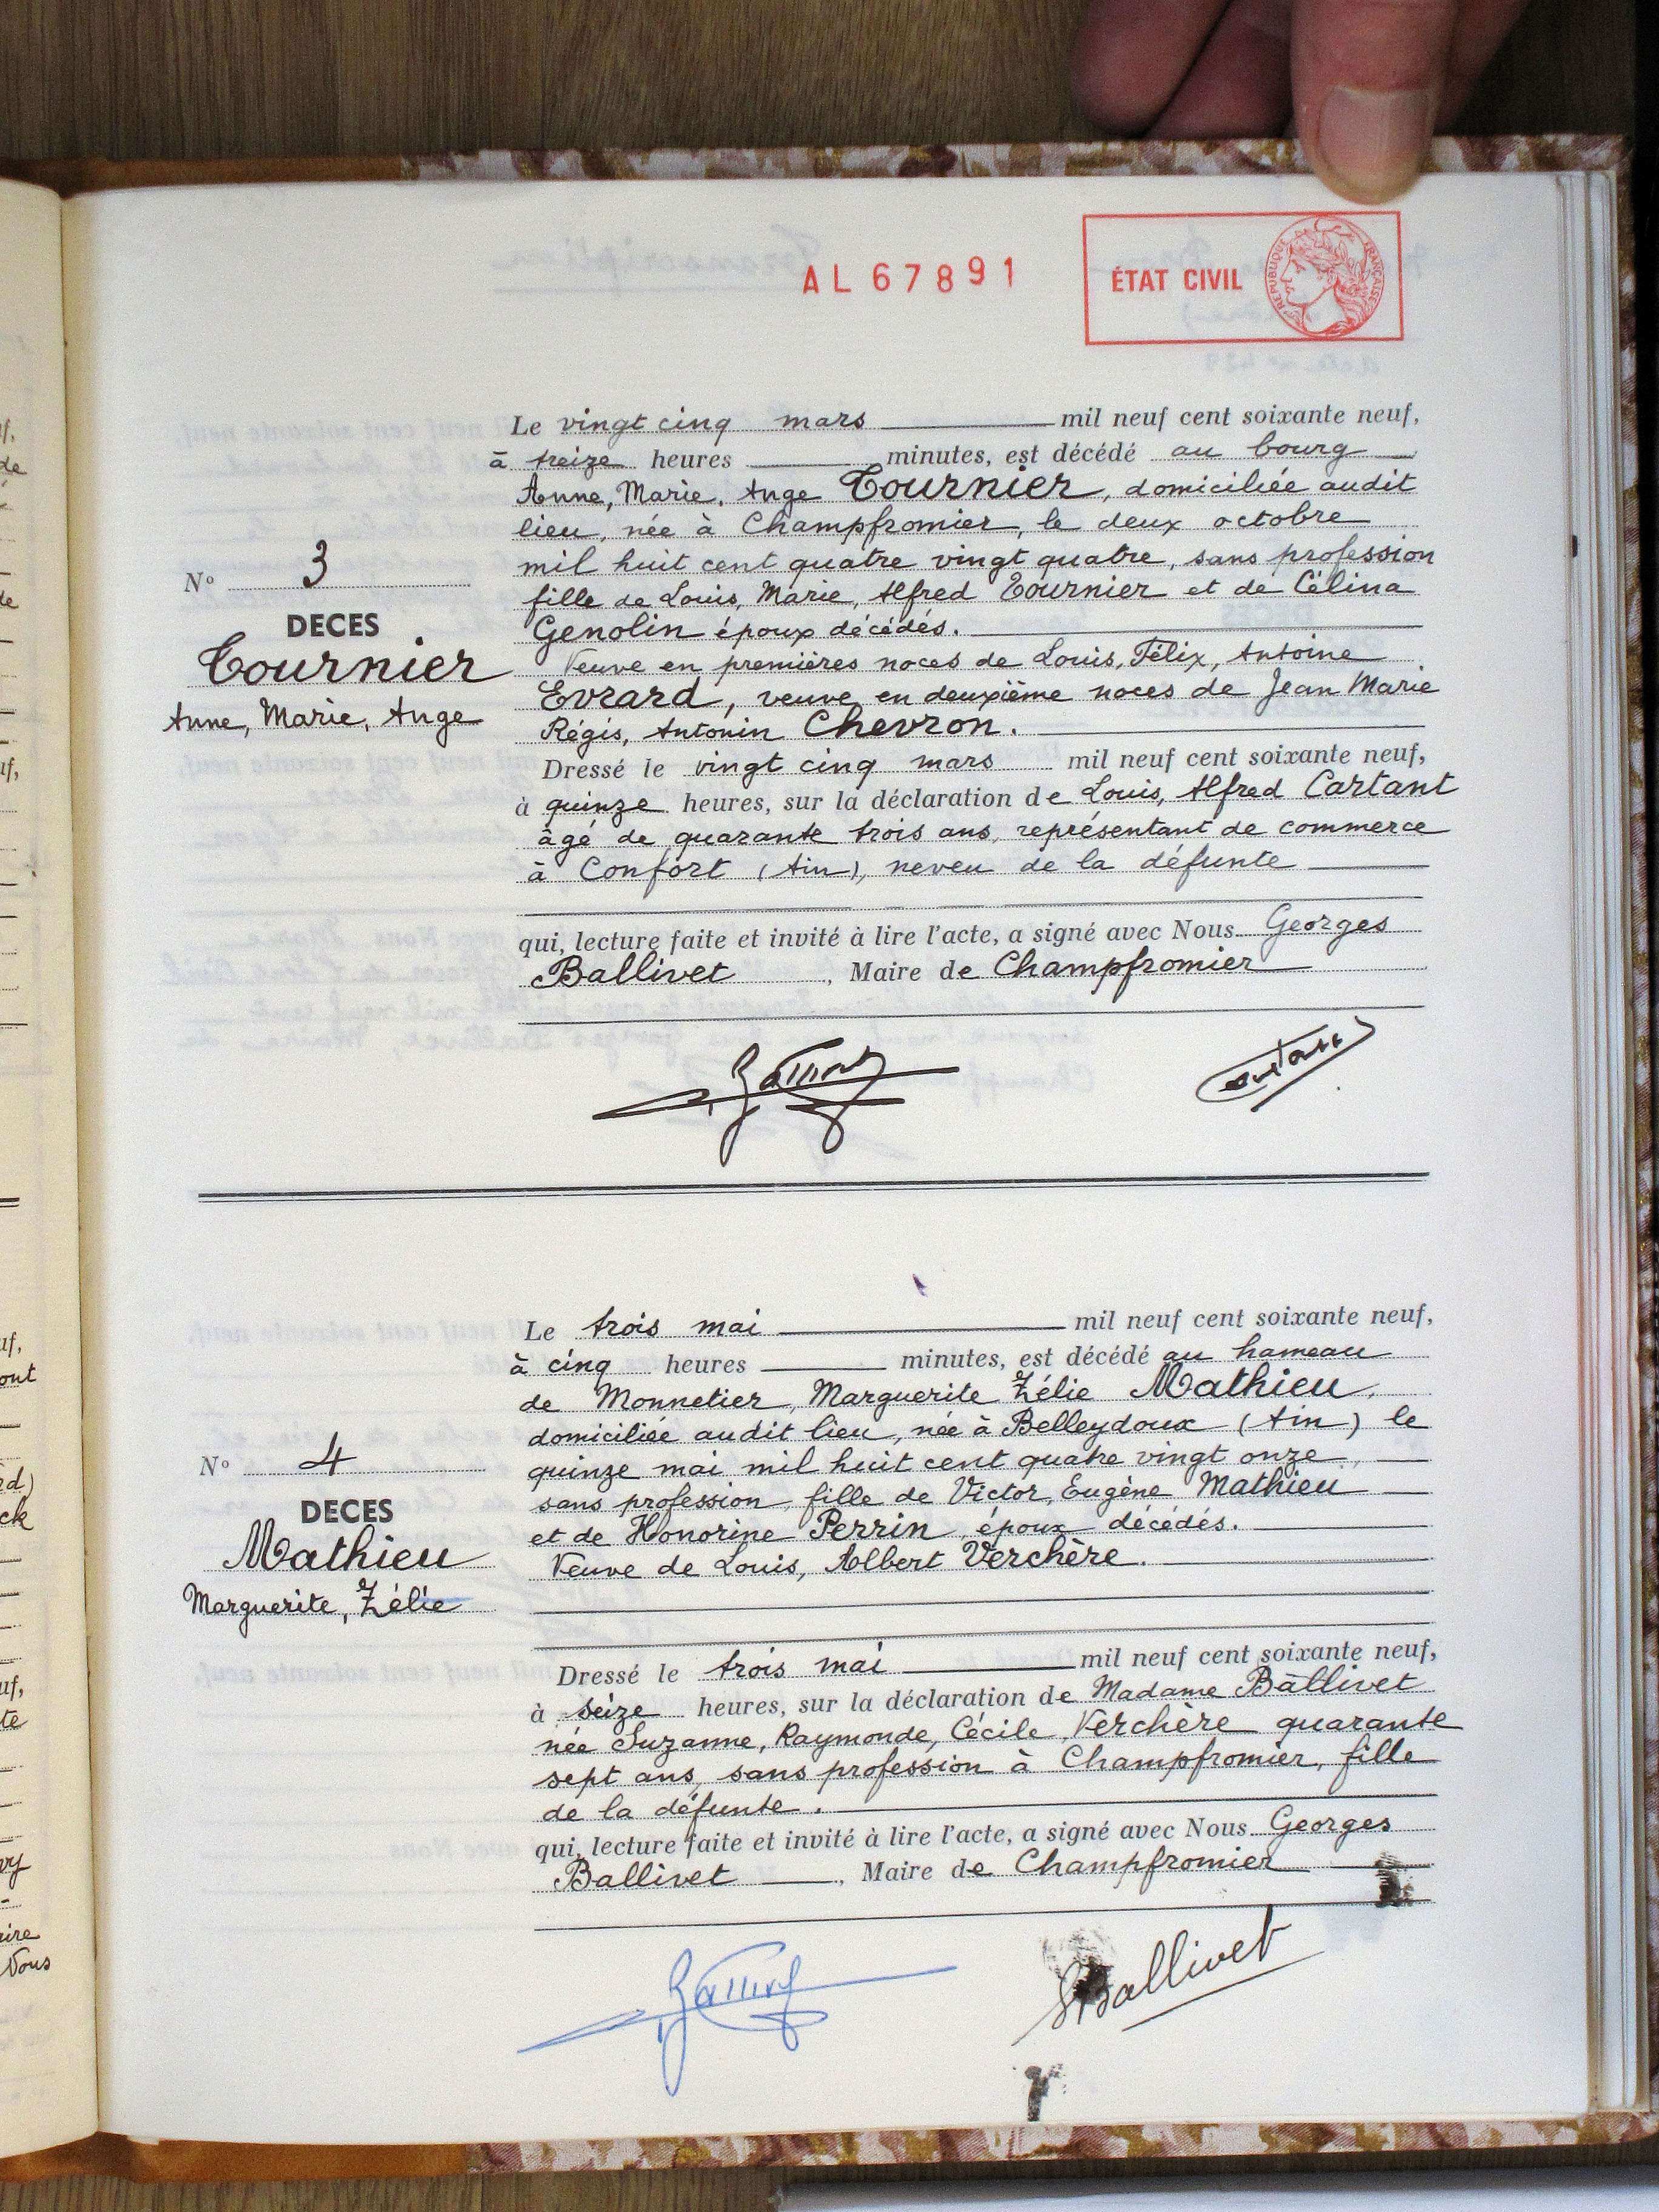 AL 67891
ÉTAT CIVIL
RÉPUBLIQUE FRANÇAISE
Le vingt cinq mars mil neuf cent soixante neuf,
à treize heures minutes, est décédé au bourg
Anne, Marie, Ange Tournier, domiciliée audit
lieu, née à Champfromier, le deux octobre
mil huit cent quatre vingt quatre, sans profession
fille de Louis, Marie, Alfred Tournier et de Célina
Genolin époux décédés.
Veuve en premières noces de Louis, Félix, Antoine
Evrard, veuve en deuxième noces de Jean Marie
Régis, Antonin Chevron.
N° 3
DECES
Tournier
Anne, Marie, Ange
Dressé le vingt cinq mars mil neuf cent soixante neuf,
à quinze heures, sur la déclaration de Louis, Alfred Cartant
âgé de quarante trois ans, représentant de commerce
à Confort (Ain), neveu de la défunte
qui, lecture faite et invité à lire l'acte, a signé avec Nous Georges
Ballivet, Maire de Champfromier
Le trois mai mil neuf cent soixante neuf,
à cinq heures minutes, est décédé au hameau
de Monnetier, Marguerite Zélie Mathieu,
domiciliée audit lieu, née à Belleydoux (Ain) le
quinze mai mil huit cent quatre vingt onze,
sans profession, fille de Victor, Eugène Mathieu
et de Honorine Perrin, époux décédés.
Veuve de Louis, Albert Verchère.
N° 4
DECES
Mathieu
Marguerite, Zélie
Dressé le trois mai mil neuf cent soixante neuf,
à seize heures, sur la déclaration de Madame Ballivet
née Suzanne, Raymonde, Cécile, Verchère quarante
sept ans, sans profession à Champfromier, fille
de la défunte.
qui, lecture faite et invité à lire l'acte, a signé avec Nous Georges
Ballivet, Maire de Champfromier
SBallivet